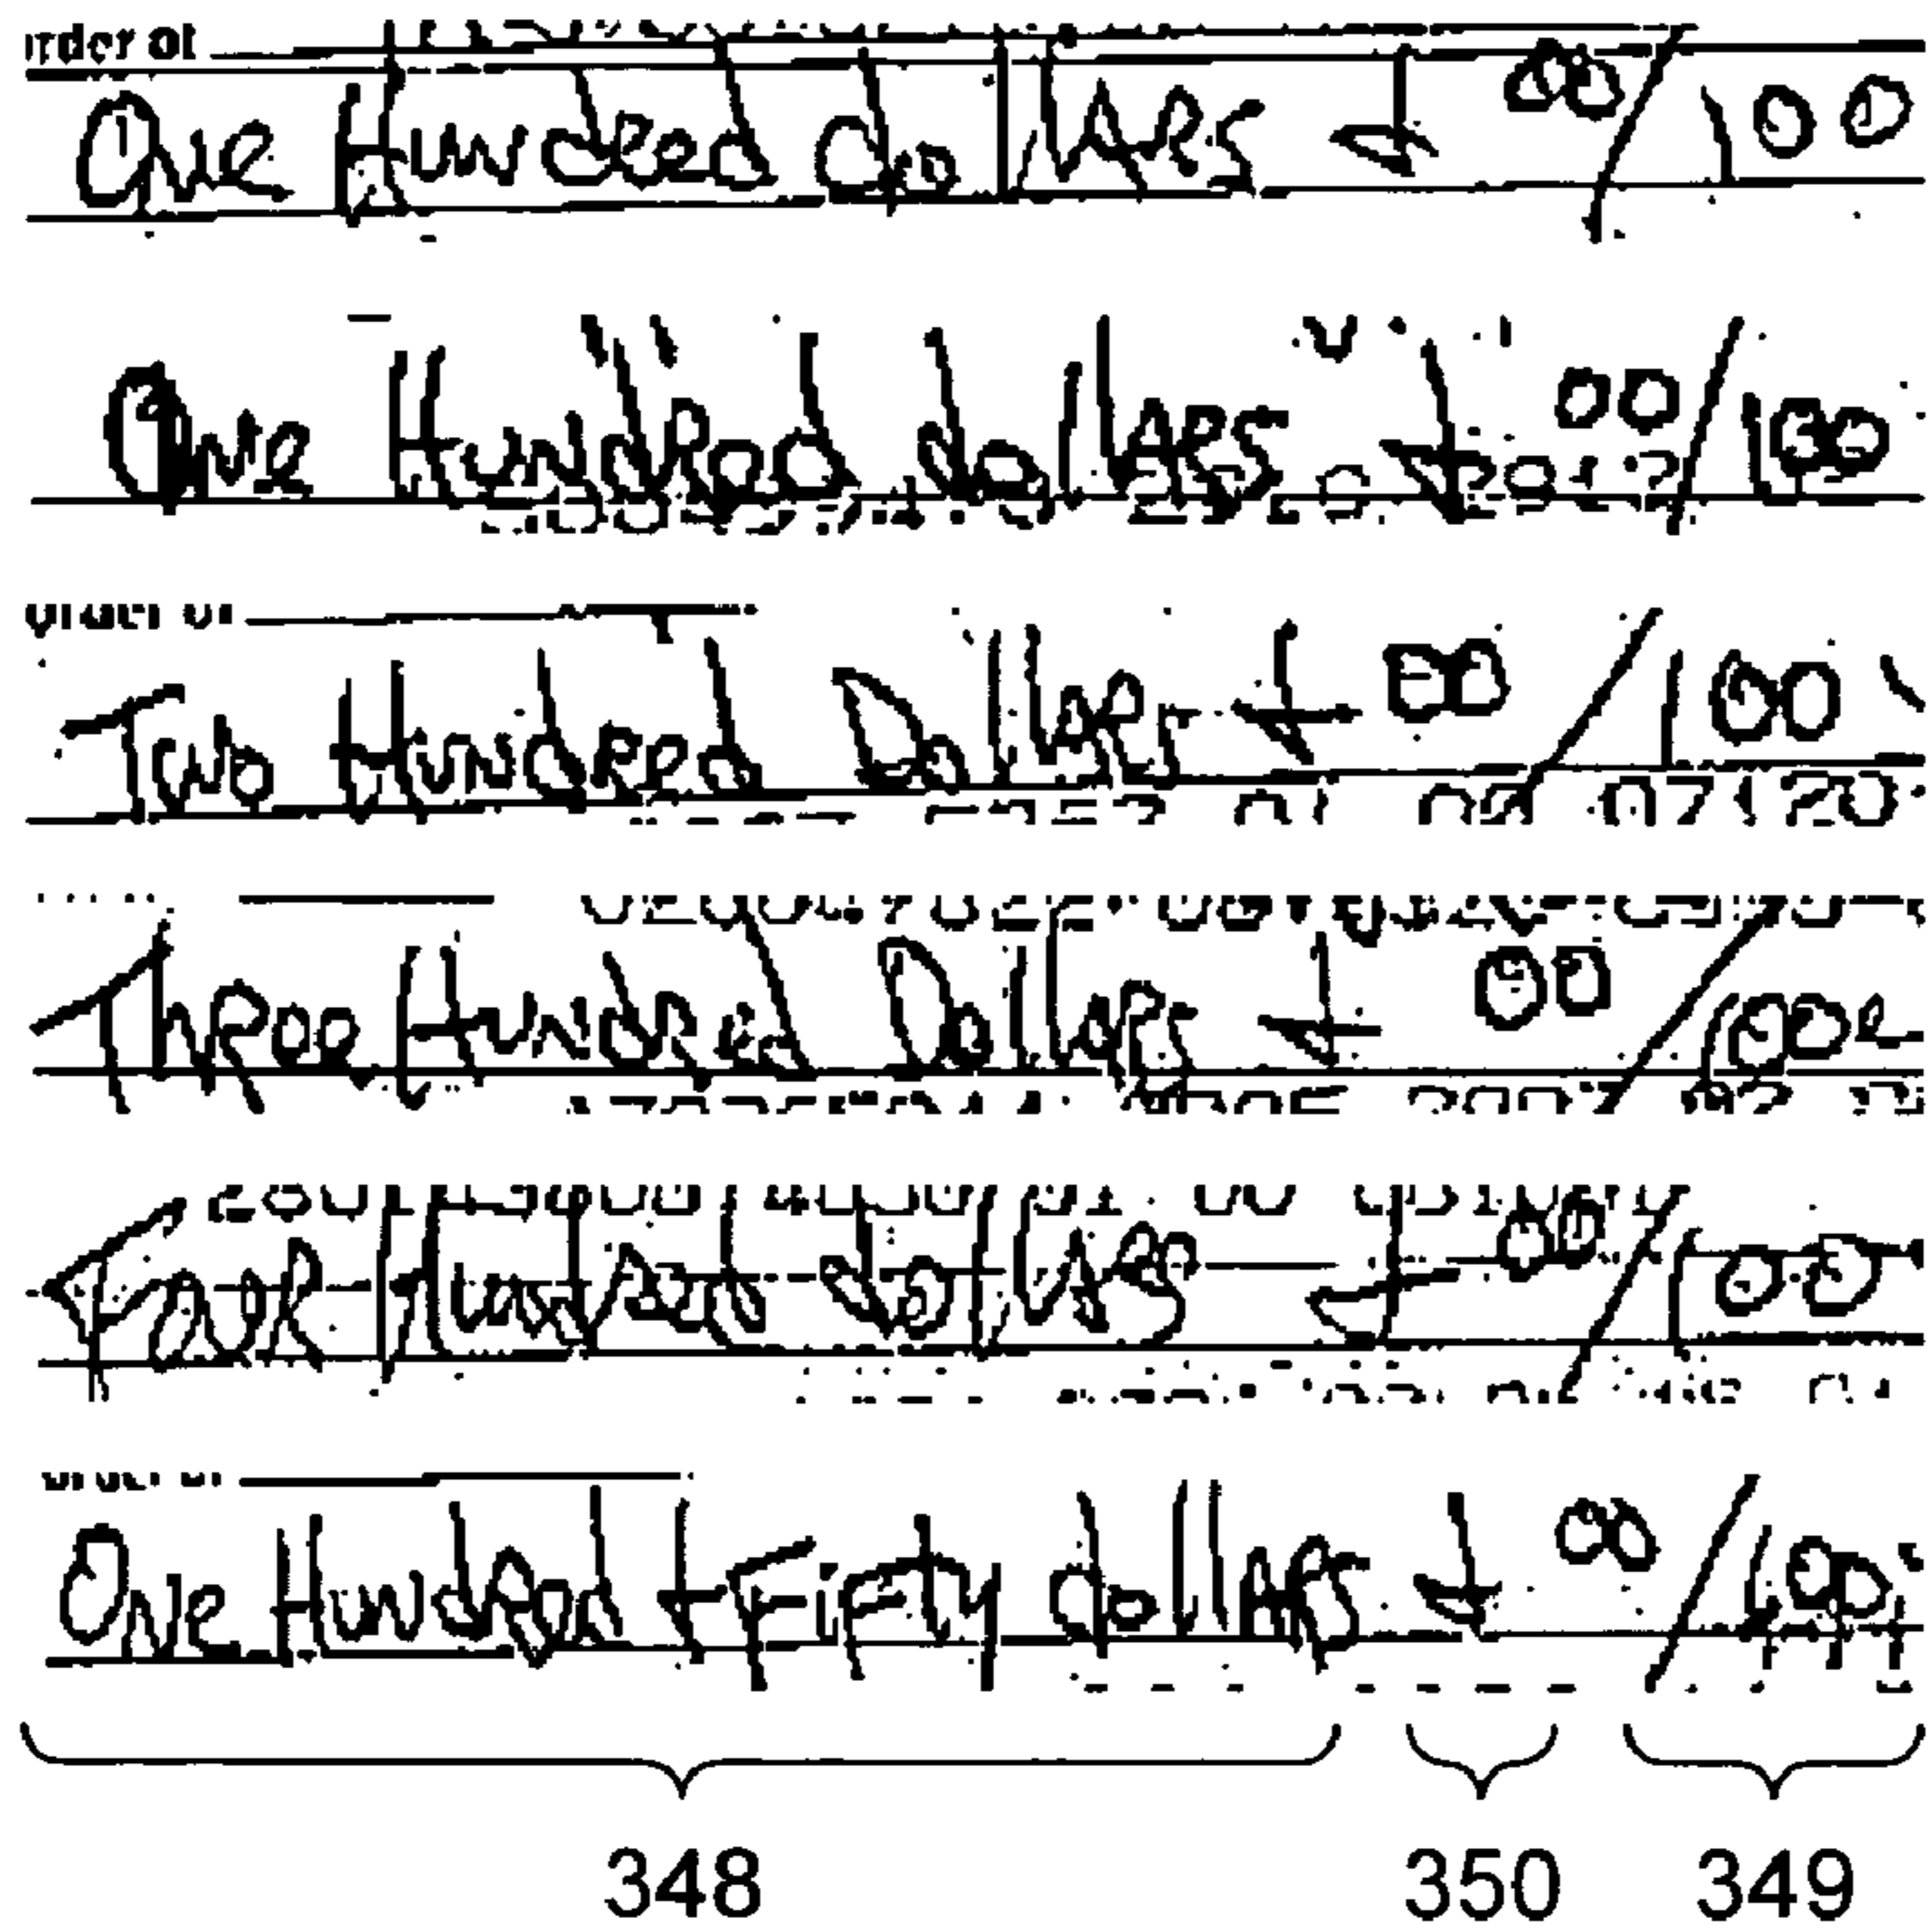 rder of
One Hundred dollars + 00/100
One Hundred dollars + 00/100
Two Hundred Dollars + 00/100
Three Hundred Dollars + 00/100
Four Hundred dollars + 00/100
One Hundred + Fifty dollars + 00/100
348 350 349